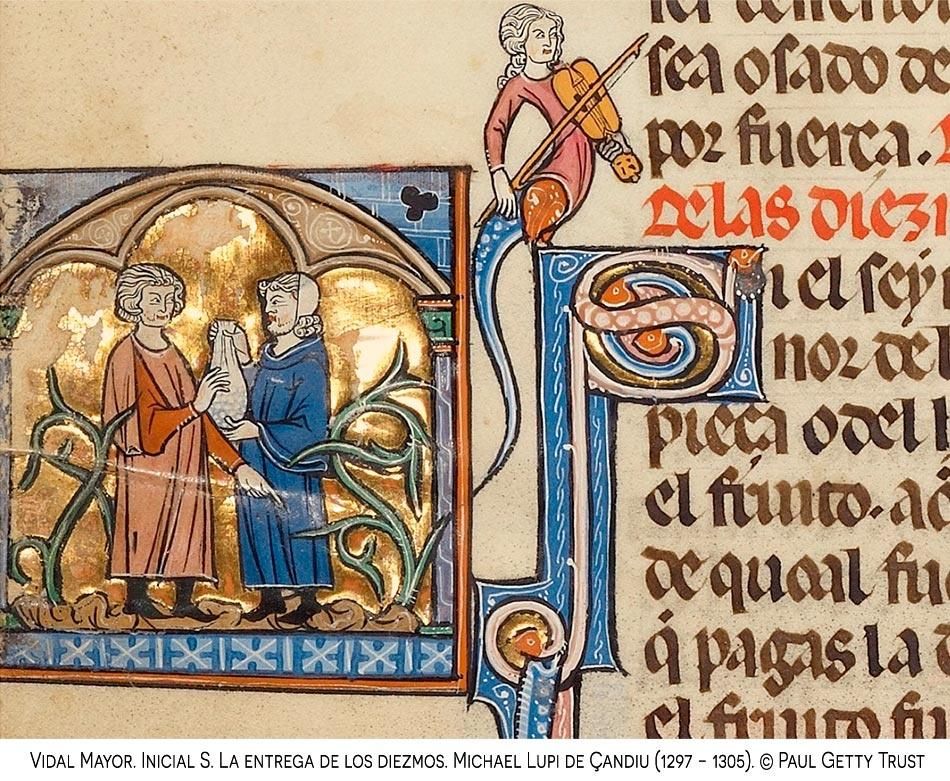 sea osado de
por fuerça.
Delas diez
Si el seý
nor del
pieça o del
el fruito. a
de quoal fu
q̉ pagas la
el fruito fu
VIDAL MAYOR. INICIAL S. LA ENTREGA DE LOS DIEZMOS. MICHAEL LUPI DE ÇANDIU (1297 - 1305). © PAUL GETTY TRUST